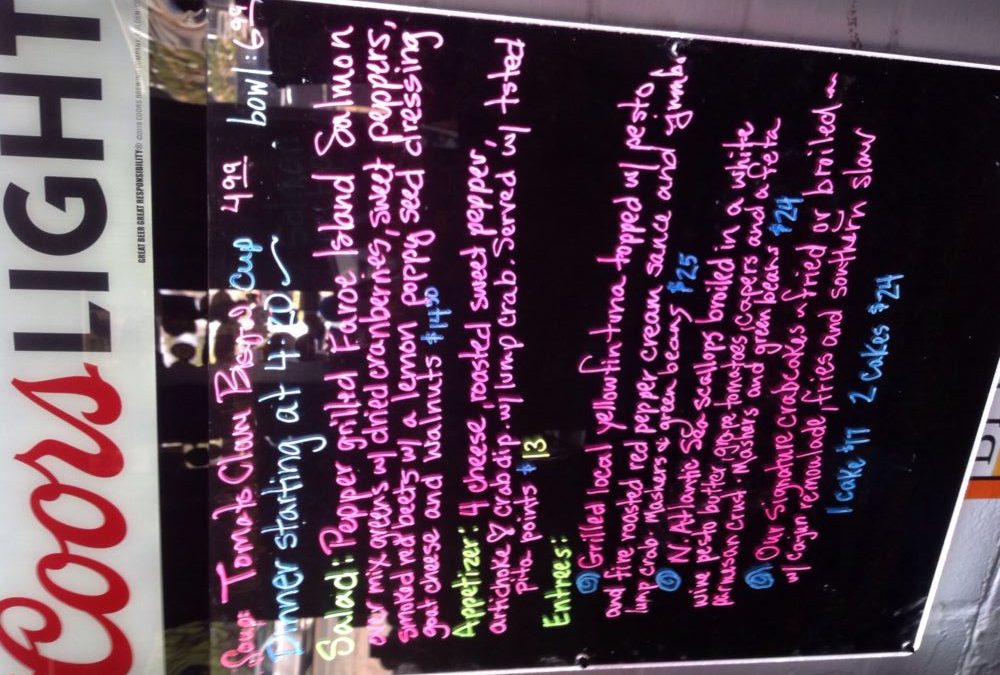 Coors LIGHT
GREAT BEER GREAT RESPONSIBILITY® ©2018 COORS BREWING COMPANY, GOLDEN, CO
Soup: Tomato Clam Bisque Cup 4.99 bowl: 6.99
Dinner starting at 4:20
Salad: Pepper grilled Faroe Island Salmon
over mix greens w/ dried cranberries, sweet peppers,
smoked red beets w/ a lemon poppy seed dressing
goat cheese and walnuts $14.50
Appetizer: 4 cheese, roasted sweet pepper,
artichoke & crab dip. w/ lump crab. Served w/ tsted
pita points $13
Entrees:
Grilled local yellowfin tuna topped w/ pesto,
and fire roasted red pepper cream sauce and jumbo
lump crab. Mashers & green beans $25
N. Atlantic Sea scallops broiled in a white
wine pesto butter, grape tomatoes, capers and a feta
parmesan crust. Mashers and green beans $24
Our Signature crabcakes ~ fried or broiled ~
w/ cajun remoulade, fries and southern slaw
1 cake $17 2 cakes $24